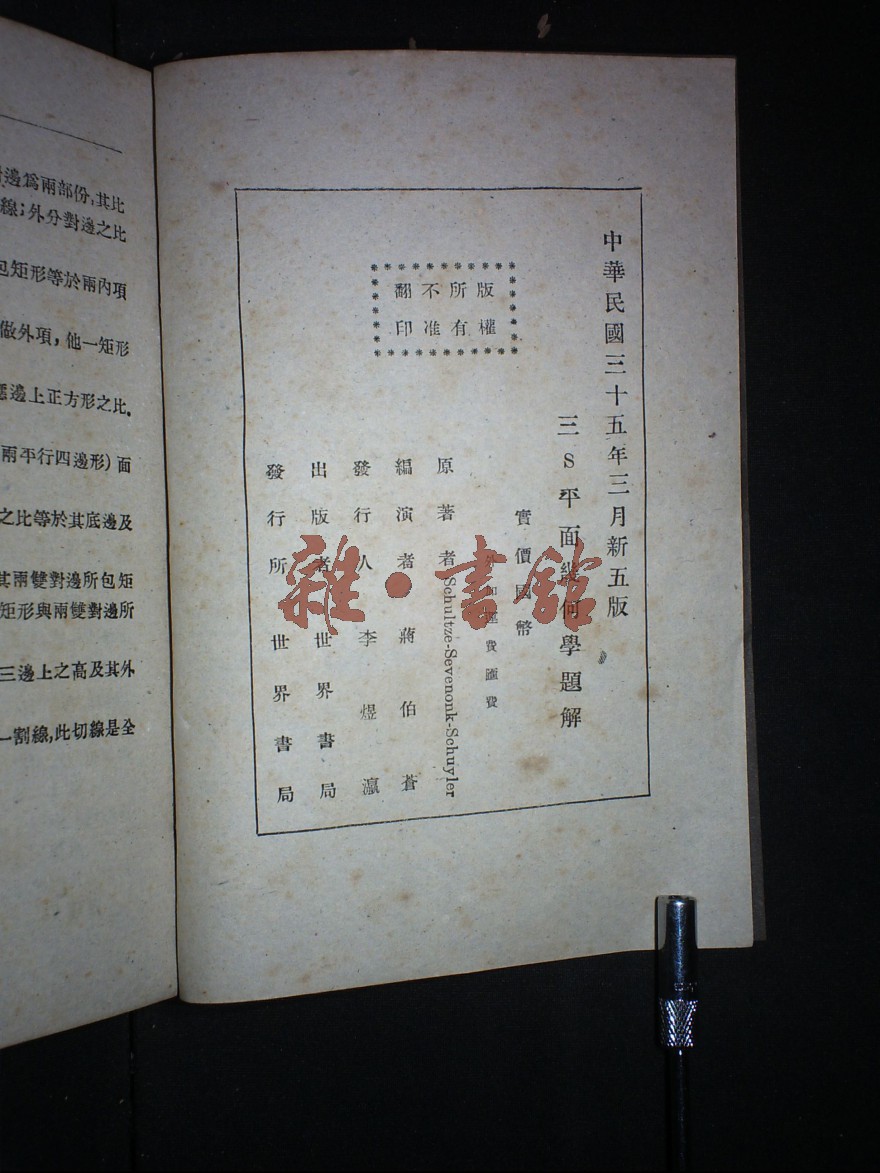 對邊爲兩部份,其比
線;外分對邊之比
包矩形等於兩內項
做外項,他一矩形
邊上正方形之比.
兩平行四邊形)面
之比等於其底邊及
其兩雙對邊所包矩
矩形與兩雙對邊所
三邊上之高及其外
一割線,此切線是全
中華民國三十五年三月新五版
版權
所有
不准
翻印
三S平面幾何學題解
實價國幣
加運費匯費
原著者 Schultze-Sevenonk-Schuyler
編演者 蔣伯蒼
發行人 李煜瀛
出版者 世界書局
發行所 世界書局
雜·書館